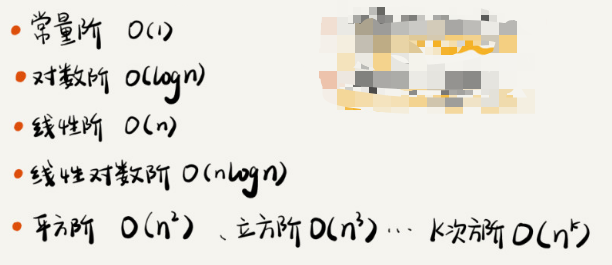 常量阶 O(1)
对数阶 O(logn)
线性阶 O(n)
线性对数阶 O(nlogn)
平方阶 O(n²) 、立方阶 O(n³) ··· K次方阶 O(nᵏ)